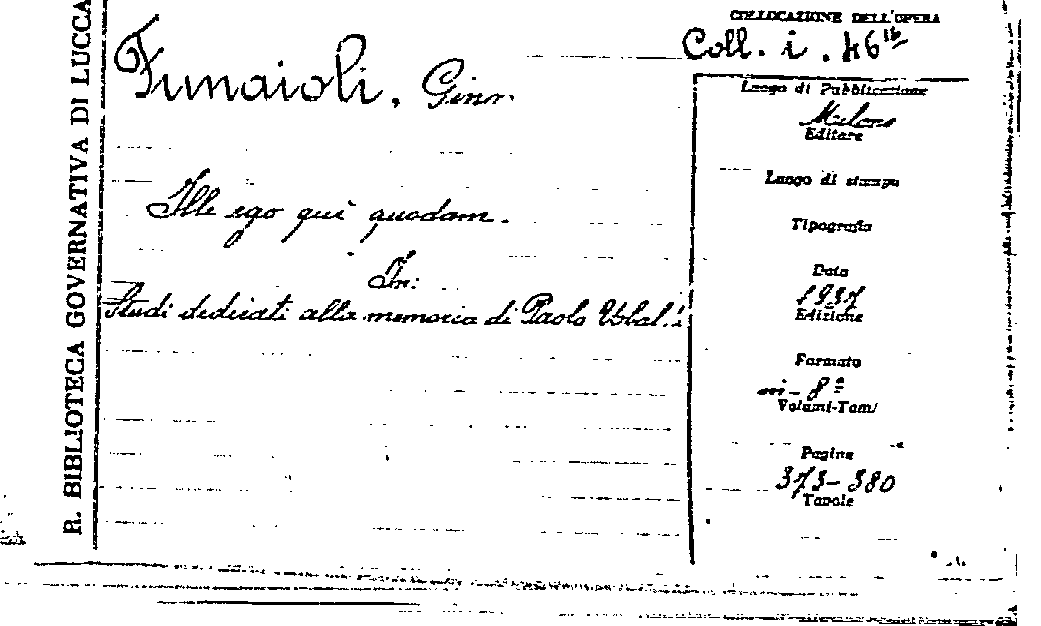 R. BIBLIOTECA GOVERNATIVA DI LUCCA
Funaioli, Gino.
Ille ego qui quodam.
In:
Studi dedicati alla memoria di Paolo Ubaldi
COLLOCAZIONE DELL'OPERA
Coll. i. 46
Luogo di Pubblicazione
Milano
Editore
Luogo di stampa
Tipografia
Data
1937
Edizione
Formato
in-8º
Volumi-Tomi
Pagine
373-380
Tavole